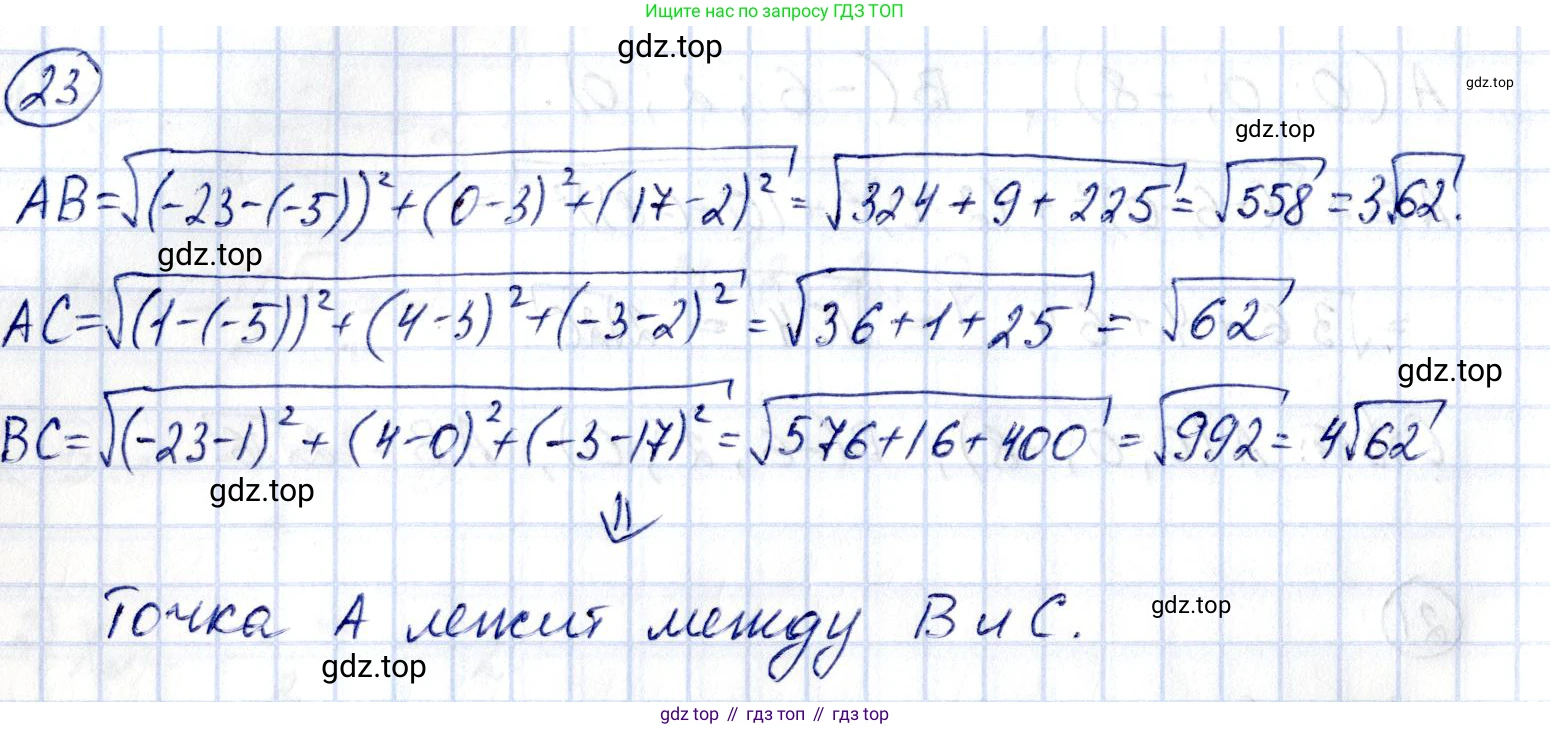 Ищите нас по запросу ГДЗ ТОП
gdz.top
23
gdz.top
gdz.top
AB=√(-23-(-5))²+(0-3)²+(17-2)² = √324+9+225 = √558 = 3√62.
gdz.top
AC=√(1-(-5))²+(4-3)²+(-3-2)² = √36+1+25 = √62
gdz.top
BC=√(-23-1)²+(4-0)²+(-3-17)² = √576+16+400 = √992 = 4√62
gdz.top
⇓
Точка A лежит между B и C.
gdz.top
gdz.top
gdz top // гдз топ // гдз top